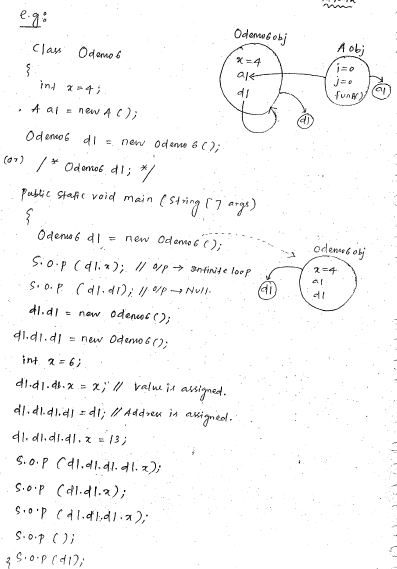 e.g:
Class Odemo6
{
int x=4;
A a1 = new A();
Odemo6 d1 = new Odemo6();
(or) /* Odemo6 d1; */
public static void main (String [] args)
{
Odemo6 d1 = new Odemo6();
S.o.p (d1.x); // o/p → Infinite loop
S.o.p (d1.d1); // o/p → Null.
d1.d1 = new Odemo6();
d1.d1.d1 = new Odemo6();
int x=6;
d1.d1.d1.x = x; // Value is assigned.
d1.d1.d1.d1 = d1; // Address is assigned.
d1.d1.d1.d1.x = 13;
S.o.p (d1.d1.d1.d1.x);
S.o.p (d1.d1.x);
S.o.p (d1.d1.d1.x);
S.o.p ();
S.o.p (d1);
}
Odemo6obj
x=4
a1
d1
d1
A obj
i=0
j=0
fun()
a1
Odemo6obj
x=4
a1
d1
d1